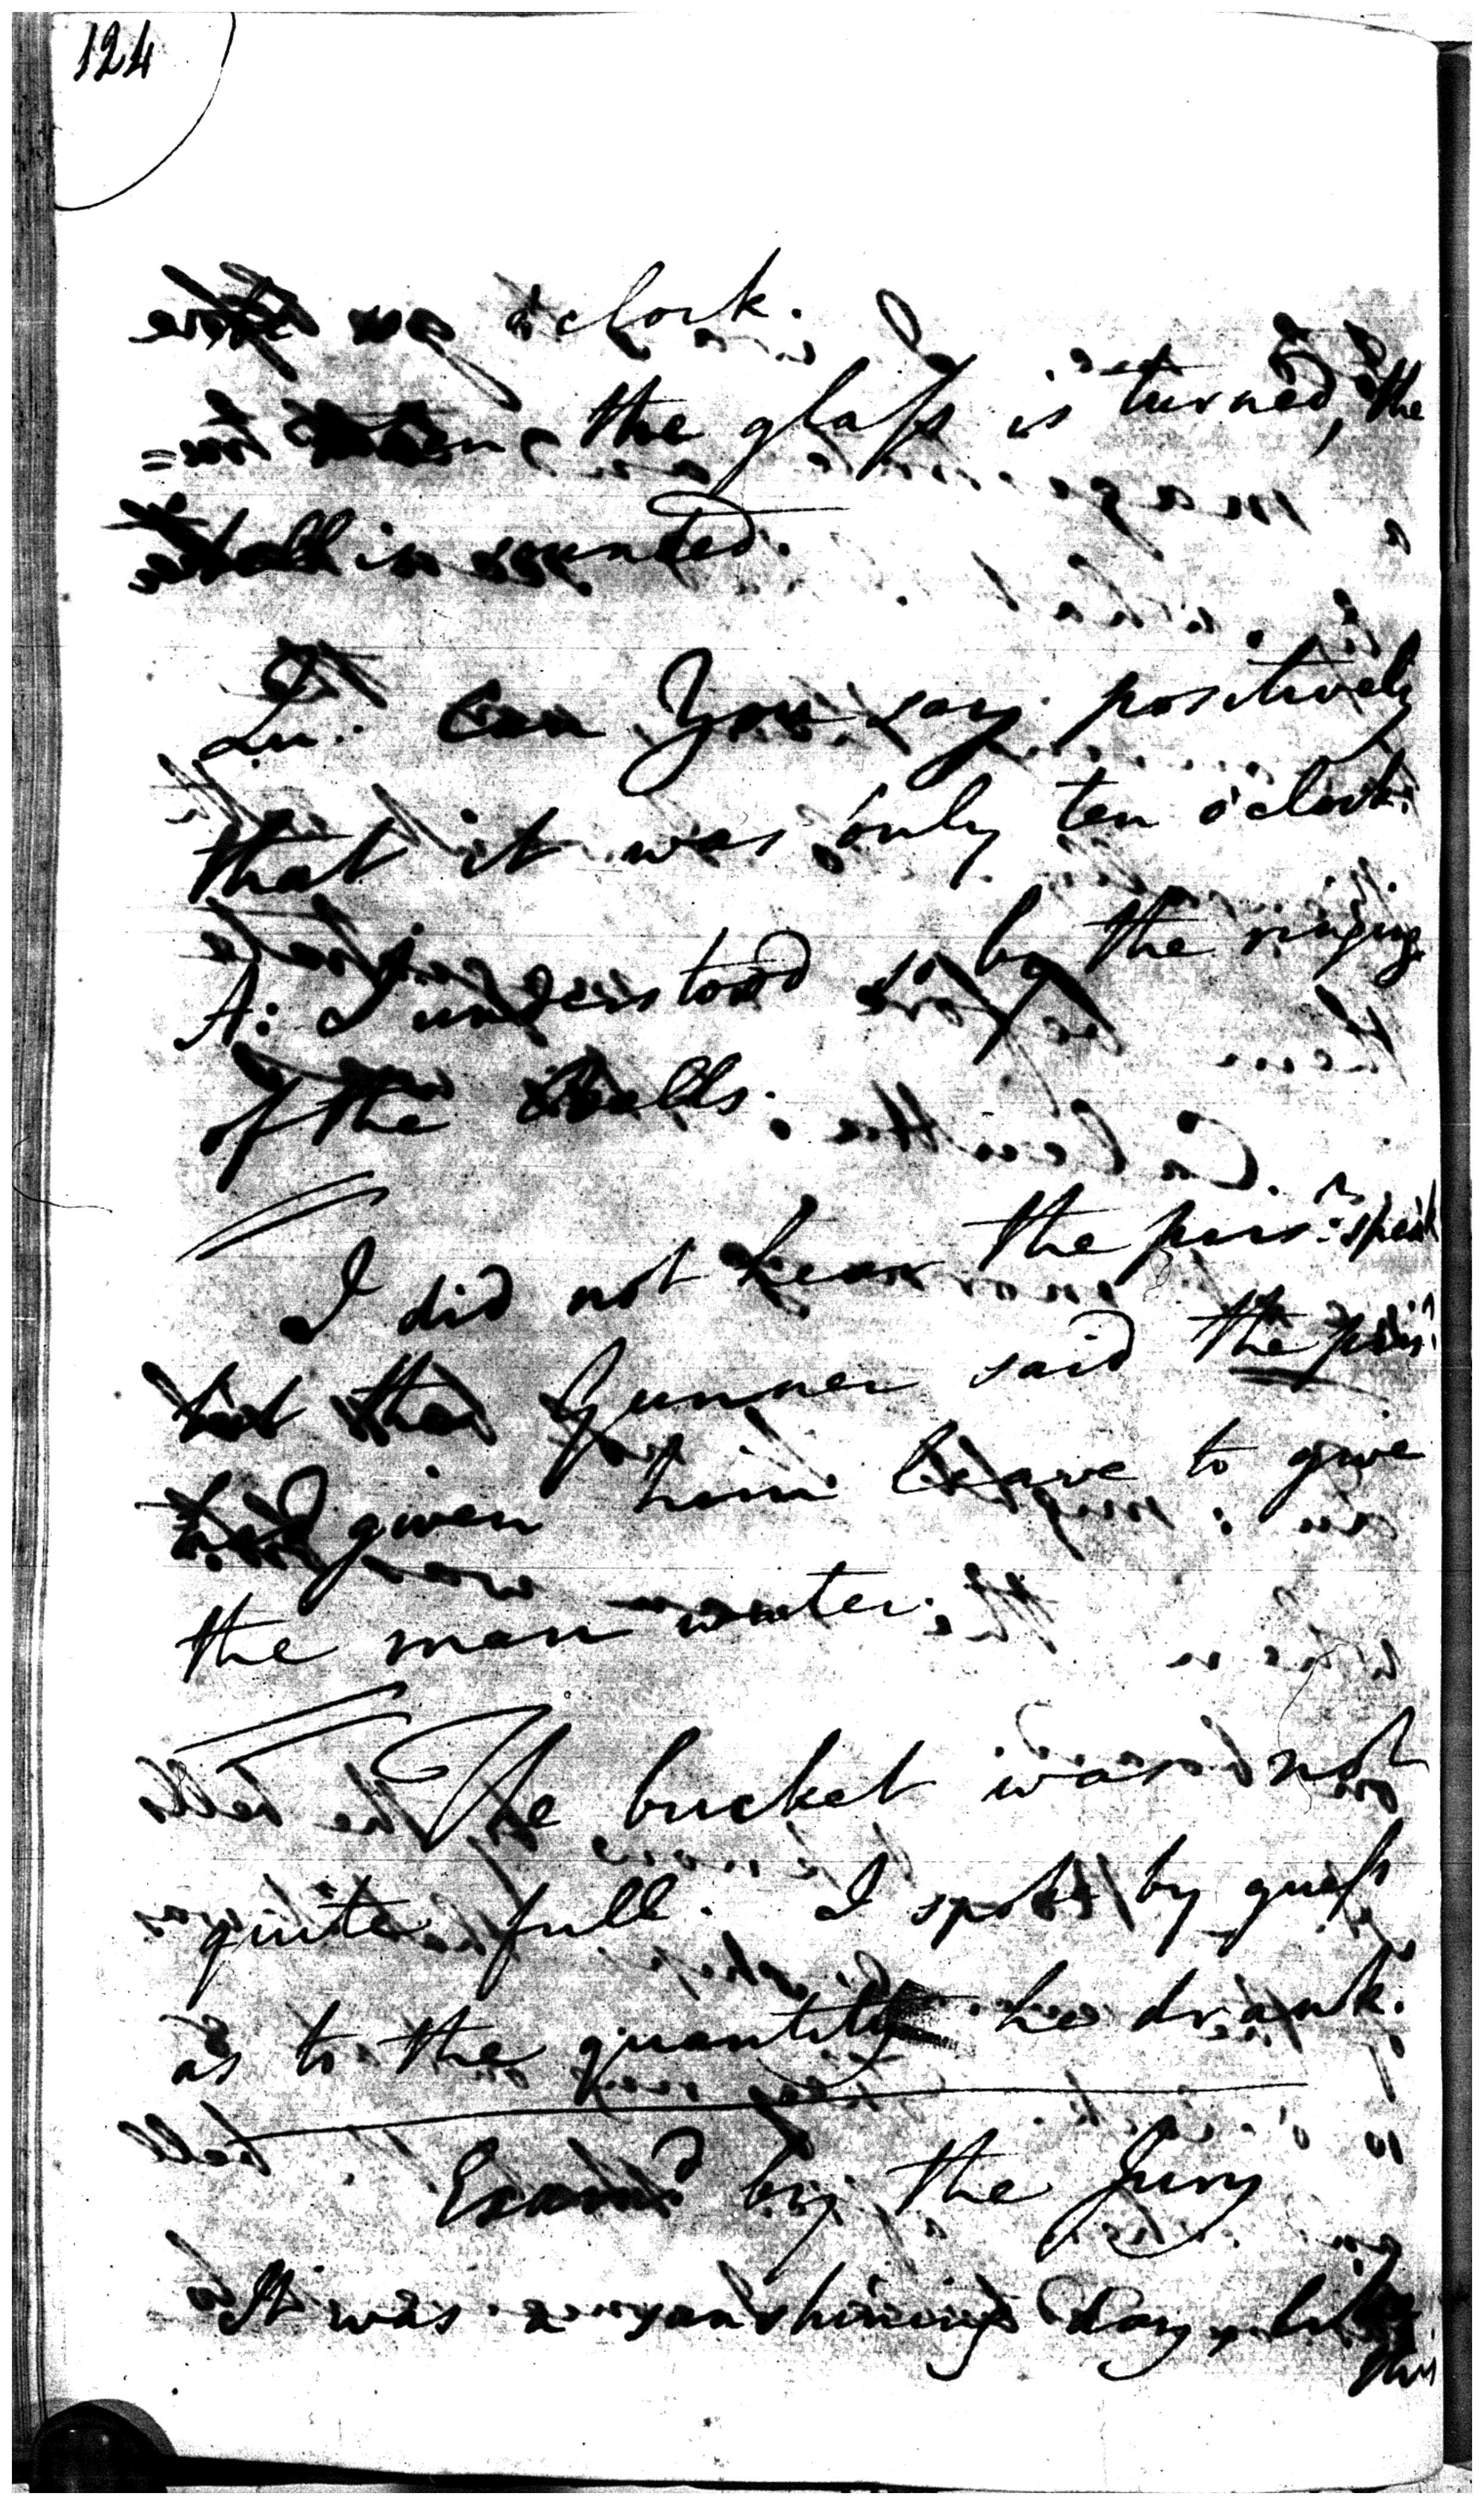 124
o'clock.
the glass is turned, the
bell is sounded.
Qu: Can You say positively
that it was only ten o'clock.
A: I understood so by the ringing
of the bells.
I did not hear the pris.r speak
but the Gunner said the pris.r
had given him leave to give
the man water.
The bucket was not
quite full. I spoke by guess
as to the quantity he drank.
Exam.d by the Jury
It was a sunshining day, like
this